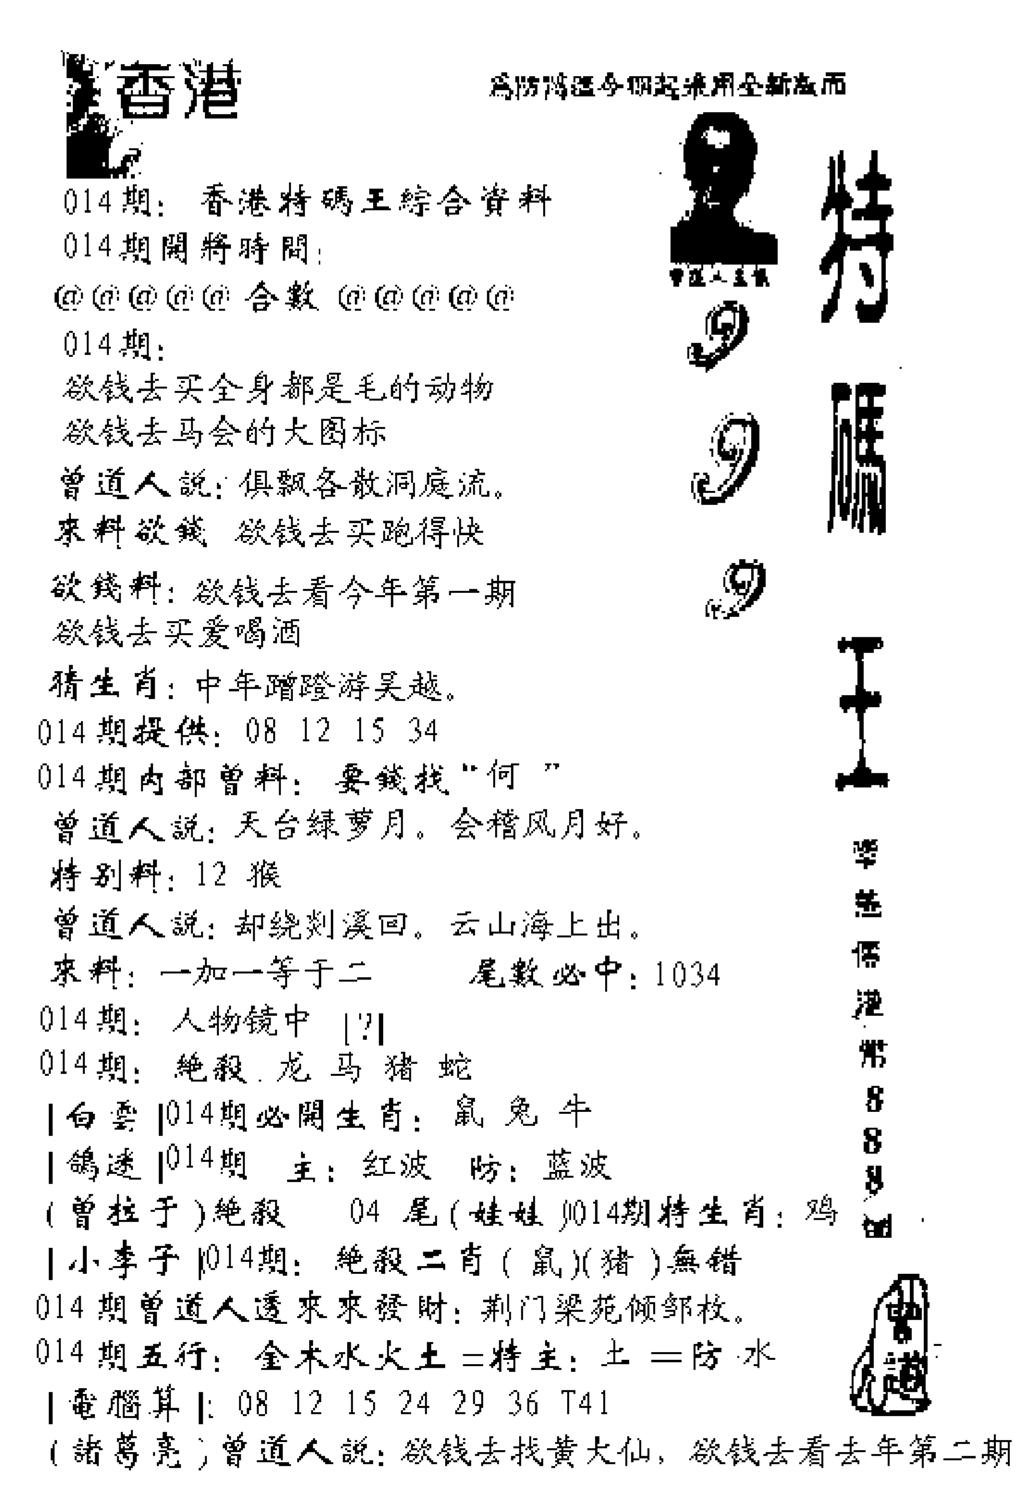 香港
為防鴻運今期起采用全新版面
014期: 香港特碼王綜合資料
014期開將時間:
@@@@@合數@@@@@
014期:
欲钱去买全身都是毛的动物
欲钱去马会的大图标
曾道人説:俱飘各散洞庭流。
來料欲錢 欲钱去买跑得快
欲錢料:欲钱去看今年第一期
欲钱去买爱喝酒
猜生肖:中年蹭蹬游吴越。
014期提供: 08 12 15 34
014期内部曾料: 要錢找“何 ”
曾道人説:天台绿萝月。会稽风月好。
特别料:12 猴
曾道人説:却绕剡溪回。云山海上出。
來料:一加一等于二 尾數必中:1034
014期: 人物镜中 [?]
014期: 絶殺.龙 马 猪 蛇
|白雲|014期必開生肖: 鼠 兔 牛
|鴿迷|014期 主:红波 防:蓝波
(曾拉于)絶殺 04 尾(娃娃)014期特生肖:鸡
|小李子|014期: 絶殺二肖(鼠)(猪)無錯
014期曾道人透來來發財:荆门梁苑倾邹枚。
014期五行: 金木水火土=特主:土 =防 水
|電腦算|: 08 12 15 24 29 36 T41
(諸葛亮)曾道人説:欲钱去找黄大仙,欲钱去看去年第二期
特碼王
999
港幣888
曾道